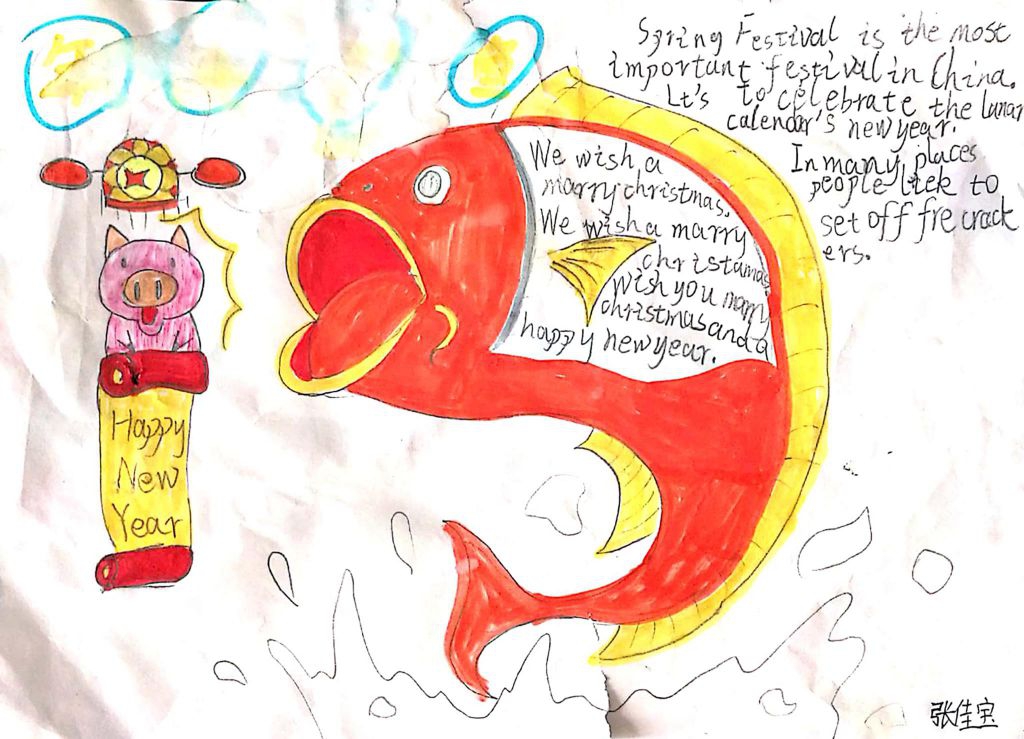 Spring Festival is the most
important festival in China.
Lt's to celebrate the lunar
calendar's new year.
In many places
people liek to
set off fre crack
ers.
We wish a
marry christmas.
We wish a marry
christamas
Wish you marry
christmas and a
happy new year.
Happy
New
Year
张佳宝